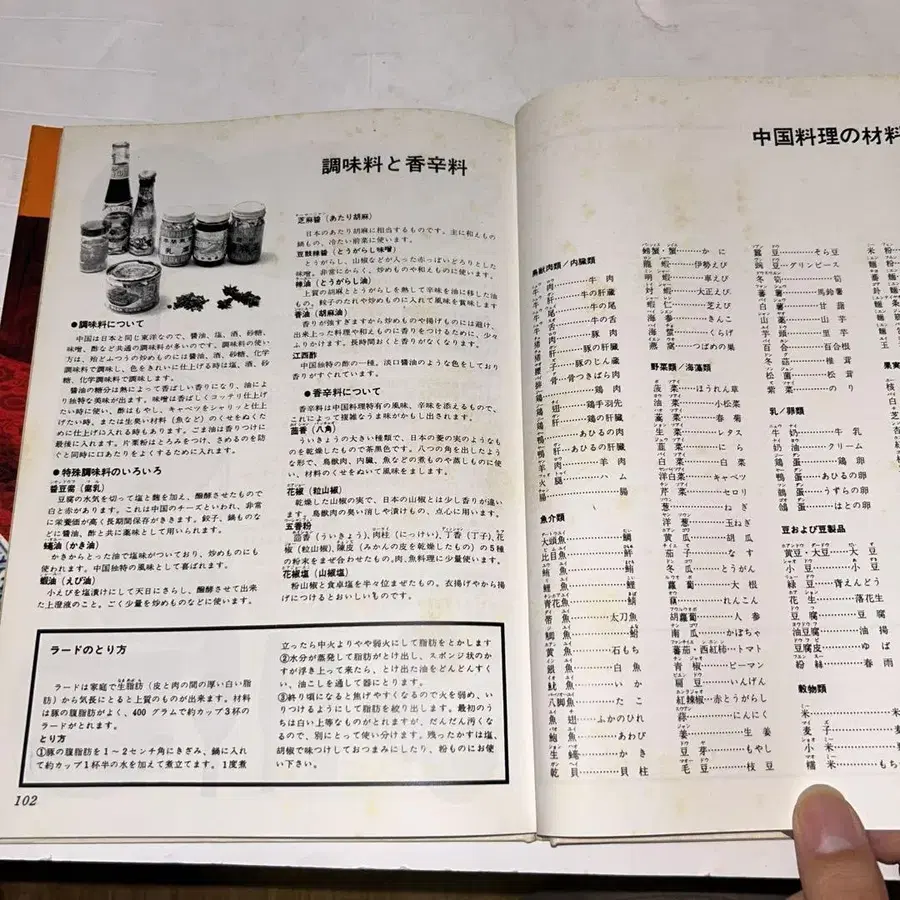 調味料と香辛料
●調味料について
中国は日本と同じ東洋なので、醤油、塩、酒、砂糖、
味噌、酢など共通の調味料が多いのです。調味料の使い
方は、殆どふつうの炒めものには醤油、酒、砂糖、化学
調味料で調味し、色をきれいに仕上げる時は塩、酒、砂
糖、化学調味料で調味します。
醤油の糖分は熱によって香ばしい香りになり、油によ
り独特な美味が出ます。味噌は香ばしくコッテリ仕上げ
たい時に使い、酢はもやし、キャベツをシャリッと仕上
げたい時、または生臭い材料(魚など)のくせをぬくた
めに仕上げに入れる時もあります。ごま油は香りつけに
最後に入れます。片栗粉はとろみをつけ、さめるのを防
ぐと同時に口あたりをよくするために入れます。
●特殊調味料のいろいろ
醤豆腐(腐乳)
豆腐の水気を切って塩と麴を加え、醗酵させたもので
白と赤があります。これは中国のチーズといわれ、非常
に栄養価が高く長期間保存がききます。餃子、鍋ものな
どに醤油、酢と共に薬味として用いられます。
蠔油(かき油)
かきからとった油で塩味がついており、炒めものにも
使われます。中国独特の風味として喜ばれます。
蝦油(えび油)
小えびを塩漬けにして天日にさらし、醗酵させて出来
た上澄液のこと。ごく少量を炒めものなどに使います。
芝麻醤(あたり胡麻)
日本のあたり胡麻に相当するものです。主に和えもの
鍋もの、冷たい前菜に使います。
豆鼓辣醤(とうがらし味噌)
とうがらし、山椒などが入った赤っぽいどろりとした
味噌。非常にからく、炒めものや和えものに使います。
辣油(とうがらし油)
上質の胡麻ととうがらしを熱して辛味を油に移したも
の。餃子のたれや炒めものに入れて風味を賞味します。
香油(胡麻油)
香りが強すぎますから炒めものや揚げものには避け、
出来上った料理や和えものに香りをつけるために、少々
ふりかけます。長時間おくと香りがなくなります。
江西酢
中国独特の酢の一種。淡口醤油のような色をしており
香りがすぐれています。
●香辛料について
香辛料は中国料理特有の風味、辛味を添えるもので、
これによって複雑なうま味がかもし出されます。
茴香(八角)
ういきょうの大きい種類で、日本の菱の実のようなも
のを乾燥したもので茶黒色です。八つの角を出したよう
な形で、鳥獣肉、内臓、魚などの煮ものや蒸しものに使
い、材料のくせをぬいて風味をまします。
花椒(粒山椒)
乾燥した山椒の実で、日本の山椒とは少し香りが違い
ます。鳥獣肉の臭い消しや漬けもの、点心に用います。
五香粉
茴香(ういきょう)、肉桂(にっけい)、丁香(丁子)、花
椒(粒山椒)、陳皮(みかんの皮を乾燥したもの)の5種
の粉末をまぜ合わせたもの。肉、魚料理に少量使います。
花椒塩(山椒塩)
粉山椒と食卓塩を半々位まぜたもの。衣揚げやから揚
げにつけるとおいしいものです。
ラードのとり方
ラードは家庭で生脂肪(皮と肉の間の厚い白い脂
肪)から気長にとると上質のものが出来ます。材料
は豚の腹脂肪がよく、400グラムで約カップ3杯の
ラードがとれます。
とり方
①豚の腹脂肪を1〜2センチ角にきざみ、鍋に入れ
て約カップ1杯半の水を加えて煮立てます。1度煮
立ったら中火よりやや弱火にして脂肪をとかします
②水分が蒸発して脂肪がとけ出し、スポンジ状のか
すが浮き上って来たら、とけ出た油をどんどんすく
い、油こしを通して器にとります。
③終り頃になると焦げやすくなるので火を弱め、い
りつけるようにして脂肪を絞り出します。最初のう
ちは白い上等なものがとれますが、だんだん汚くな
るので、別にとって使い分けます。残ったかすは塩、
胡椒で味つけしておつまみにしたり、粉ものにお使
い下さい。
102
中国料理の材料
鳥獣肉類/内臓類
牛肉……牛肉
牛肝……牛の肝臓
牛尾……牛の尾
牛舌……牛の舌
猪肉……豚肉
猪肝……豚の肝臓
魚介類
鯉魚……鯉
帯魚……太刀魚
黄魚……石もち
銀魚……白魚
魷魚……いか
八脚魚……たこ
魚翅……ふかのひれ
鮑魚……あわび
生蠔……かき
乾貝……貝柱
螃蟹・蟹……かに
龍蝦……伊勢えび
明蝦……車えび
対蝦……大正えび
海参……きんこ
海蜇……くらげ
燕窩……つばめの巣
野菜類/海藻類
菠菜……ほうれん草
油菜……小松菜
生菜……レタス
韮菜……にら
白菜……白菜
洋白菜……キャベツ
芹菜……セロリ
葱……ねぎ
洋葱……玉ねぎ
黄瓜……胡瓜
茄子……なす
冬瓜……とうがん
蘿蔔……大根
藕……れんこん
胡蘿蔔……人参
南瓜……かぼちゃ
蕃茄・西紅柿…トマト
青椒……ピーマン
扁豆……いんげん
紅辣椒……赤とうがらし
蒜……にんにく
姜……生姜
豆芽……もやし
毛豆……枝豆
蚕豆……そら豆
豌豆……グリンピース
冬筍……筍
百合……百合根
冬菇……椎茸
松菌……松茸
紫菜……のり
乳/卵類
牛奶……牛乳
奶油……クリーム
鶏蛋……鶏卵
鴨蛋……あひるの卵
鵪蛋……うずらの卵
鴿蛋……はとの卵
豆および豆製品
黄豆・大豆……大豆
小豆……小豆
緑豆……青えんどう
花生……落花生
豆腐……豆腐
油豆腐……油揚
豆腐皮……ゆば
粉絲……春雨
穀物類
米……米
麦子
小米
糯米……もち